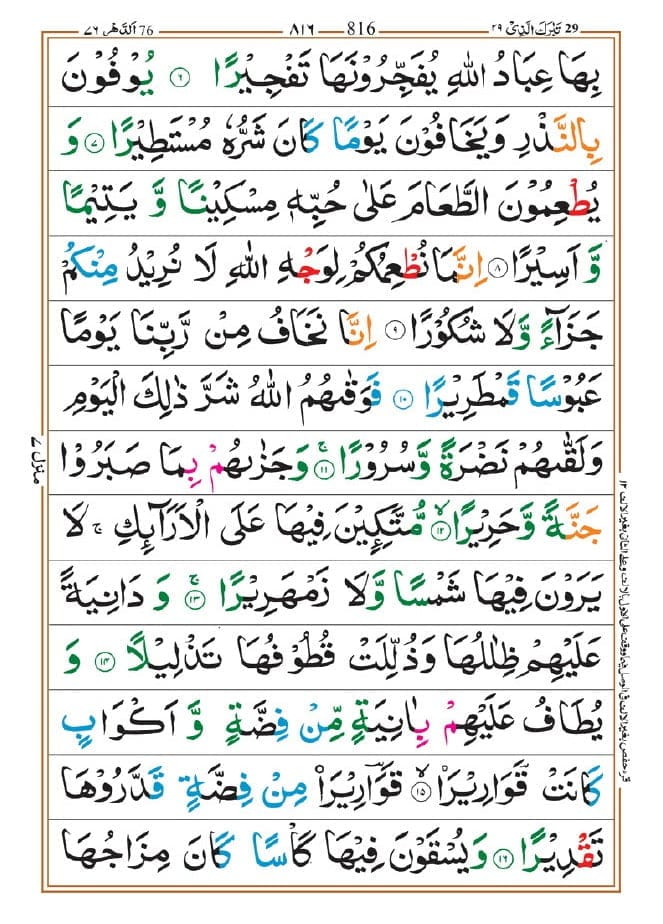 29 تَبٰرَكَ الَّذِىْ ٢٩
816 ٨١٦
76 اَلدَّهْر ٧٦
بِهَا عِبَادُ اللّٰهِ يُفَجِّرُوْنَهَا تَفْجِيْرًا ۝٦ يُوْفُوْنَ
بِالنَّذْرِ وَيَخَافُوْنَ يَوْمًا كَانَ شَرُّهٗ مُسْتَطِيْرًا ۝٧ وَ
يُطْعِمُوْنَ الطَّعَامَ عَلٰى حُبِّهٖ مِسْكِيْنًا وَّ يَتِيْمًا
وَّ اَسِيْرًا ۝٨ اِنَّمَا نُطْعِمُكُمْ لِوَجْهِ اللّٰهِ لَا نُرِيْدُ مِنْكُمْ
جَزَآءً وَّلَا شُكُوْرًا ۝٩ اِنَّا نَخَافُ مِنْ رَّبِّنَا يَوْمًا
عَبُوْسًا قَمْطَرِيْرًا ۝١٠ فَوَقٰىهُمُ اللّٰهُ شَرَّ ذٰلِكَ الْيَوْمِ
وَلَقّٰىهُمْ نَضْرَةً وَّسُرُوْرًا ۝١١ۚ وَجَزٰىهُمْ بِمَا صَبَرُوْا
جَنَّةً وَّحَرِيْرًا ۝١٢ۙ مُّتَّكِـِٕيْنَ فِيْهَا عَلَى الْاَرَآئِكِ ۚ لَا
يَرَوْنَ فِيْهَا شَمْسًا وَّلَا زَمْهَرِيْرًا ۝١٣ۚ وَ دَانِيَةً
عَلَيْهِمْ ظِلٰلُهَا وَذُلِّلَتْ قُطُوْفُهَا تَذْلِيْلًا ۝١٤ وَ
يُطَافُ عَلَيْهِمْ بِاٰنِيَةٍ مِّنْ فِضَّةٍ وَّ اَكْوَابٍ
كَانَتْ قَوَارِيْرَا۠ ۝١٥ۙ قَوَارِيْرَا۟ مِنْ فِضَّةٍ قَدَّرُوْهَا
تَقْدِيْرًا ۝١٦ وَيُسْقَوْنَ فِيْهَا كَاْسًا كَانَ مِزَاجُهَا
منزل ٧